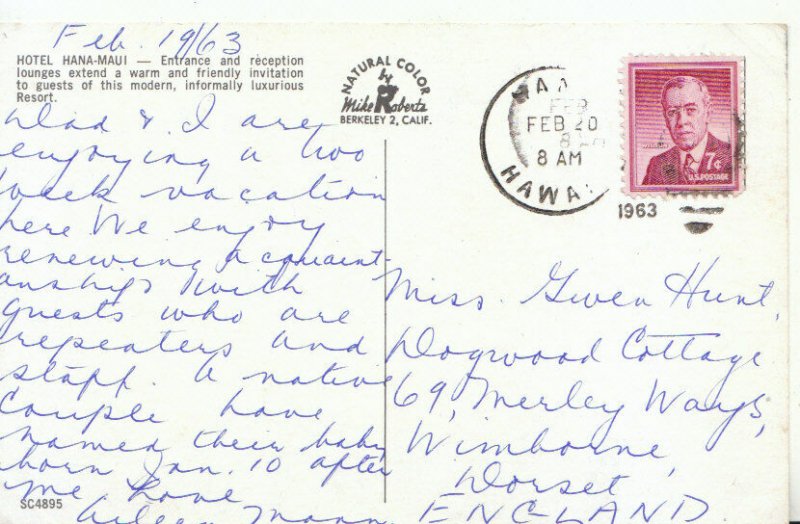 Feb. 19/63
HOTEL HANA-MAUI — Entrance and reception
lounges extend a warm and friendly invitation
to guests of this modern, informally luxurious
Resort.
NATURAL COLOR
by
Mike Roberts
BERKELEY 2, CALIF.
FEB
FEB 20
8 AM
HAWAI
1963
7¢
U.S. POSTAGE
Dad & I are
enjoying a two
week vacation
here We enjoy
renewing acquaint-
anships with
guests who are
repeaters and
staff. A native
couple have
named their baby
born Jan. 10 after
me. Love
Aileen Mann
Miss. Gwen Hunt,
Dogwood Cottage
69, Merley Ways,
Wimborne,
Dorset,
ENGLAND.
SC4895